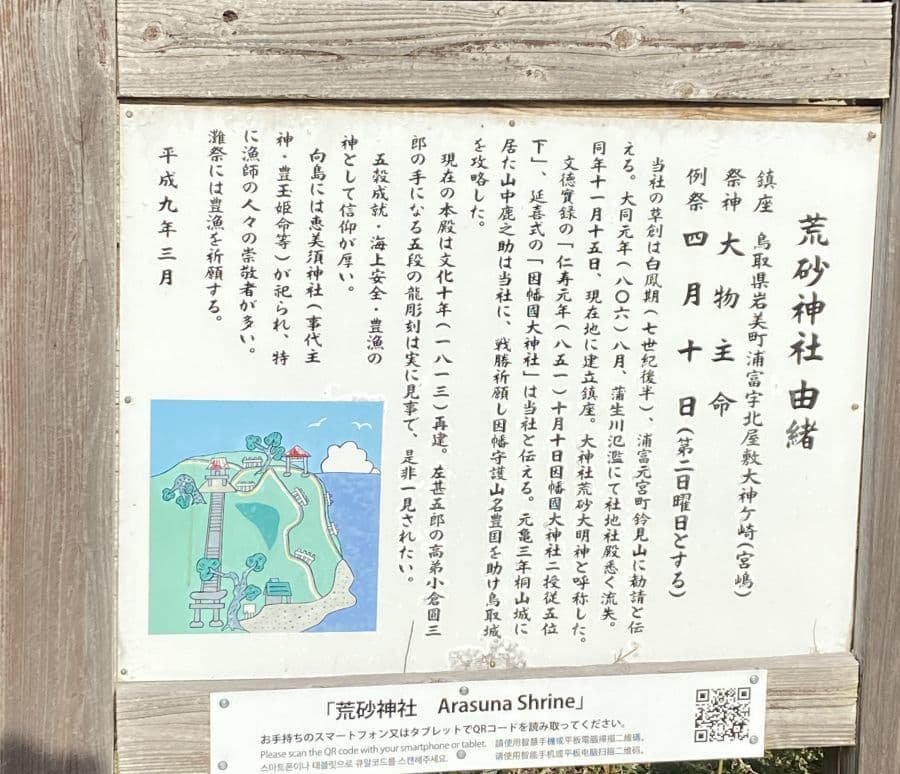 荒砂神社 由緒
鎮座 鳥取県岩美町浦富字北屋敷大神ケ崎(宮嶋)
祭神 大物主命
例祭 四月十日(第二日曜日とする)
当社の草創は白鳳期(七世紀後半)、浦富元宮町鈴見山に勧請と伝
える。大同元年(八〇六)八月、蒲生川氾濫にて社地社殿悉く流失。
同年十一月十五日、現在地に建立鎮座。大神社荒砂大明神と呼称した。
文徳實録の「仁寿元年(八五一)十月十日因幡國大神社ニ授従五位
下」、延喜式の「因幡國大神社」は当社と伝える。元亀三年桐山城に
居た山中鹿之助は当社に、戦勝祈願し因幡守護山名豊国を助け鳥取城
を攻略した。
現在の本殿は文化十年(一八一三)再建。左甚五郎の高弟小倉圓三
郎の手になる五段の龍彫刻は実に見事で、是非一見されたい。
五穀成就・海上安全・豊漁の
神として信仰が厚い。
向島には恵美須神社(事代主
神・豊玉姫命等)が祀られ、特
に漁師の人々の崇敬者が多い。
灘祭には豊漁を祈願する。
平成九年三月
「荒砂神社 Arasuna Shrine」
お手持ちのスマートフォン又はタブレットでQRコードを読み取ってください。
Please scan the QR code with your smartphone or tablet. 請使用智慧手機或平板電腦掃描二維碼。
스마트폰이나 태블릿으로 큐알코드를 스캔해주세요. 请使用智能手机或平板电脑扫描二维码。